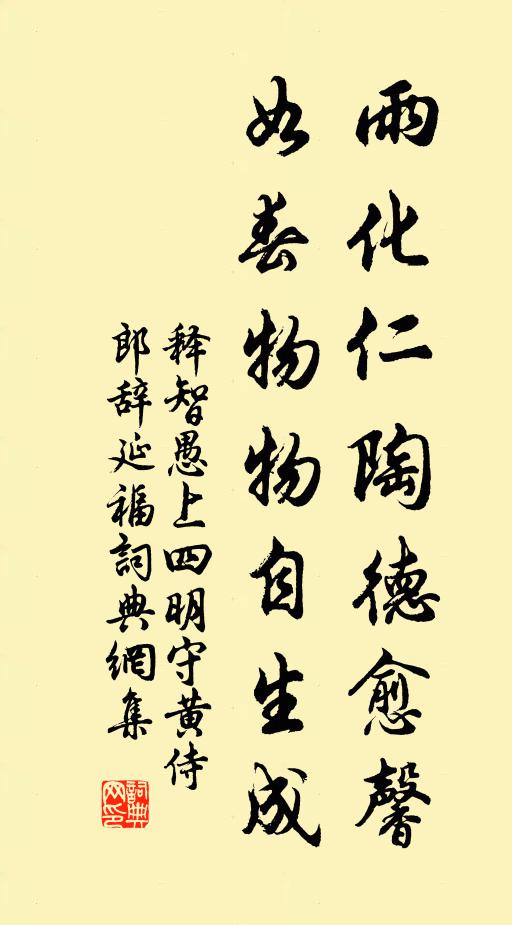 雨化仁陶德愈馨
如春物物自生成
释智愚上四明守黄侍
郎辞延福詞典網集
詞典
网印